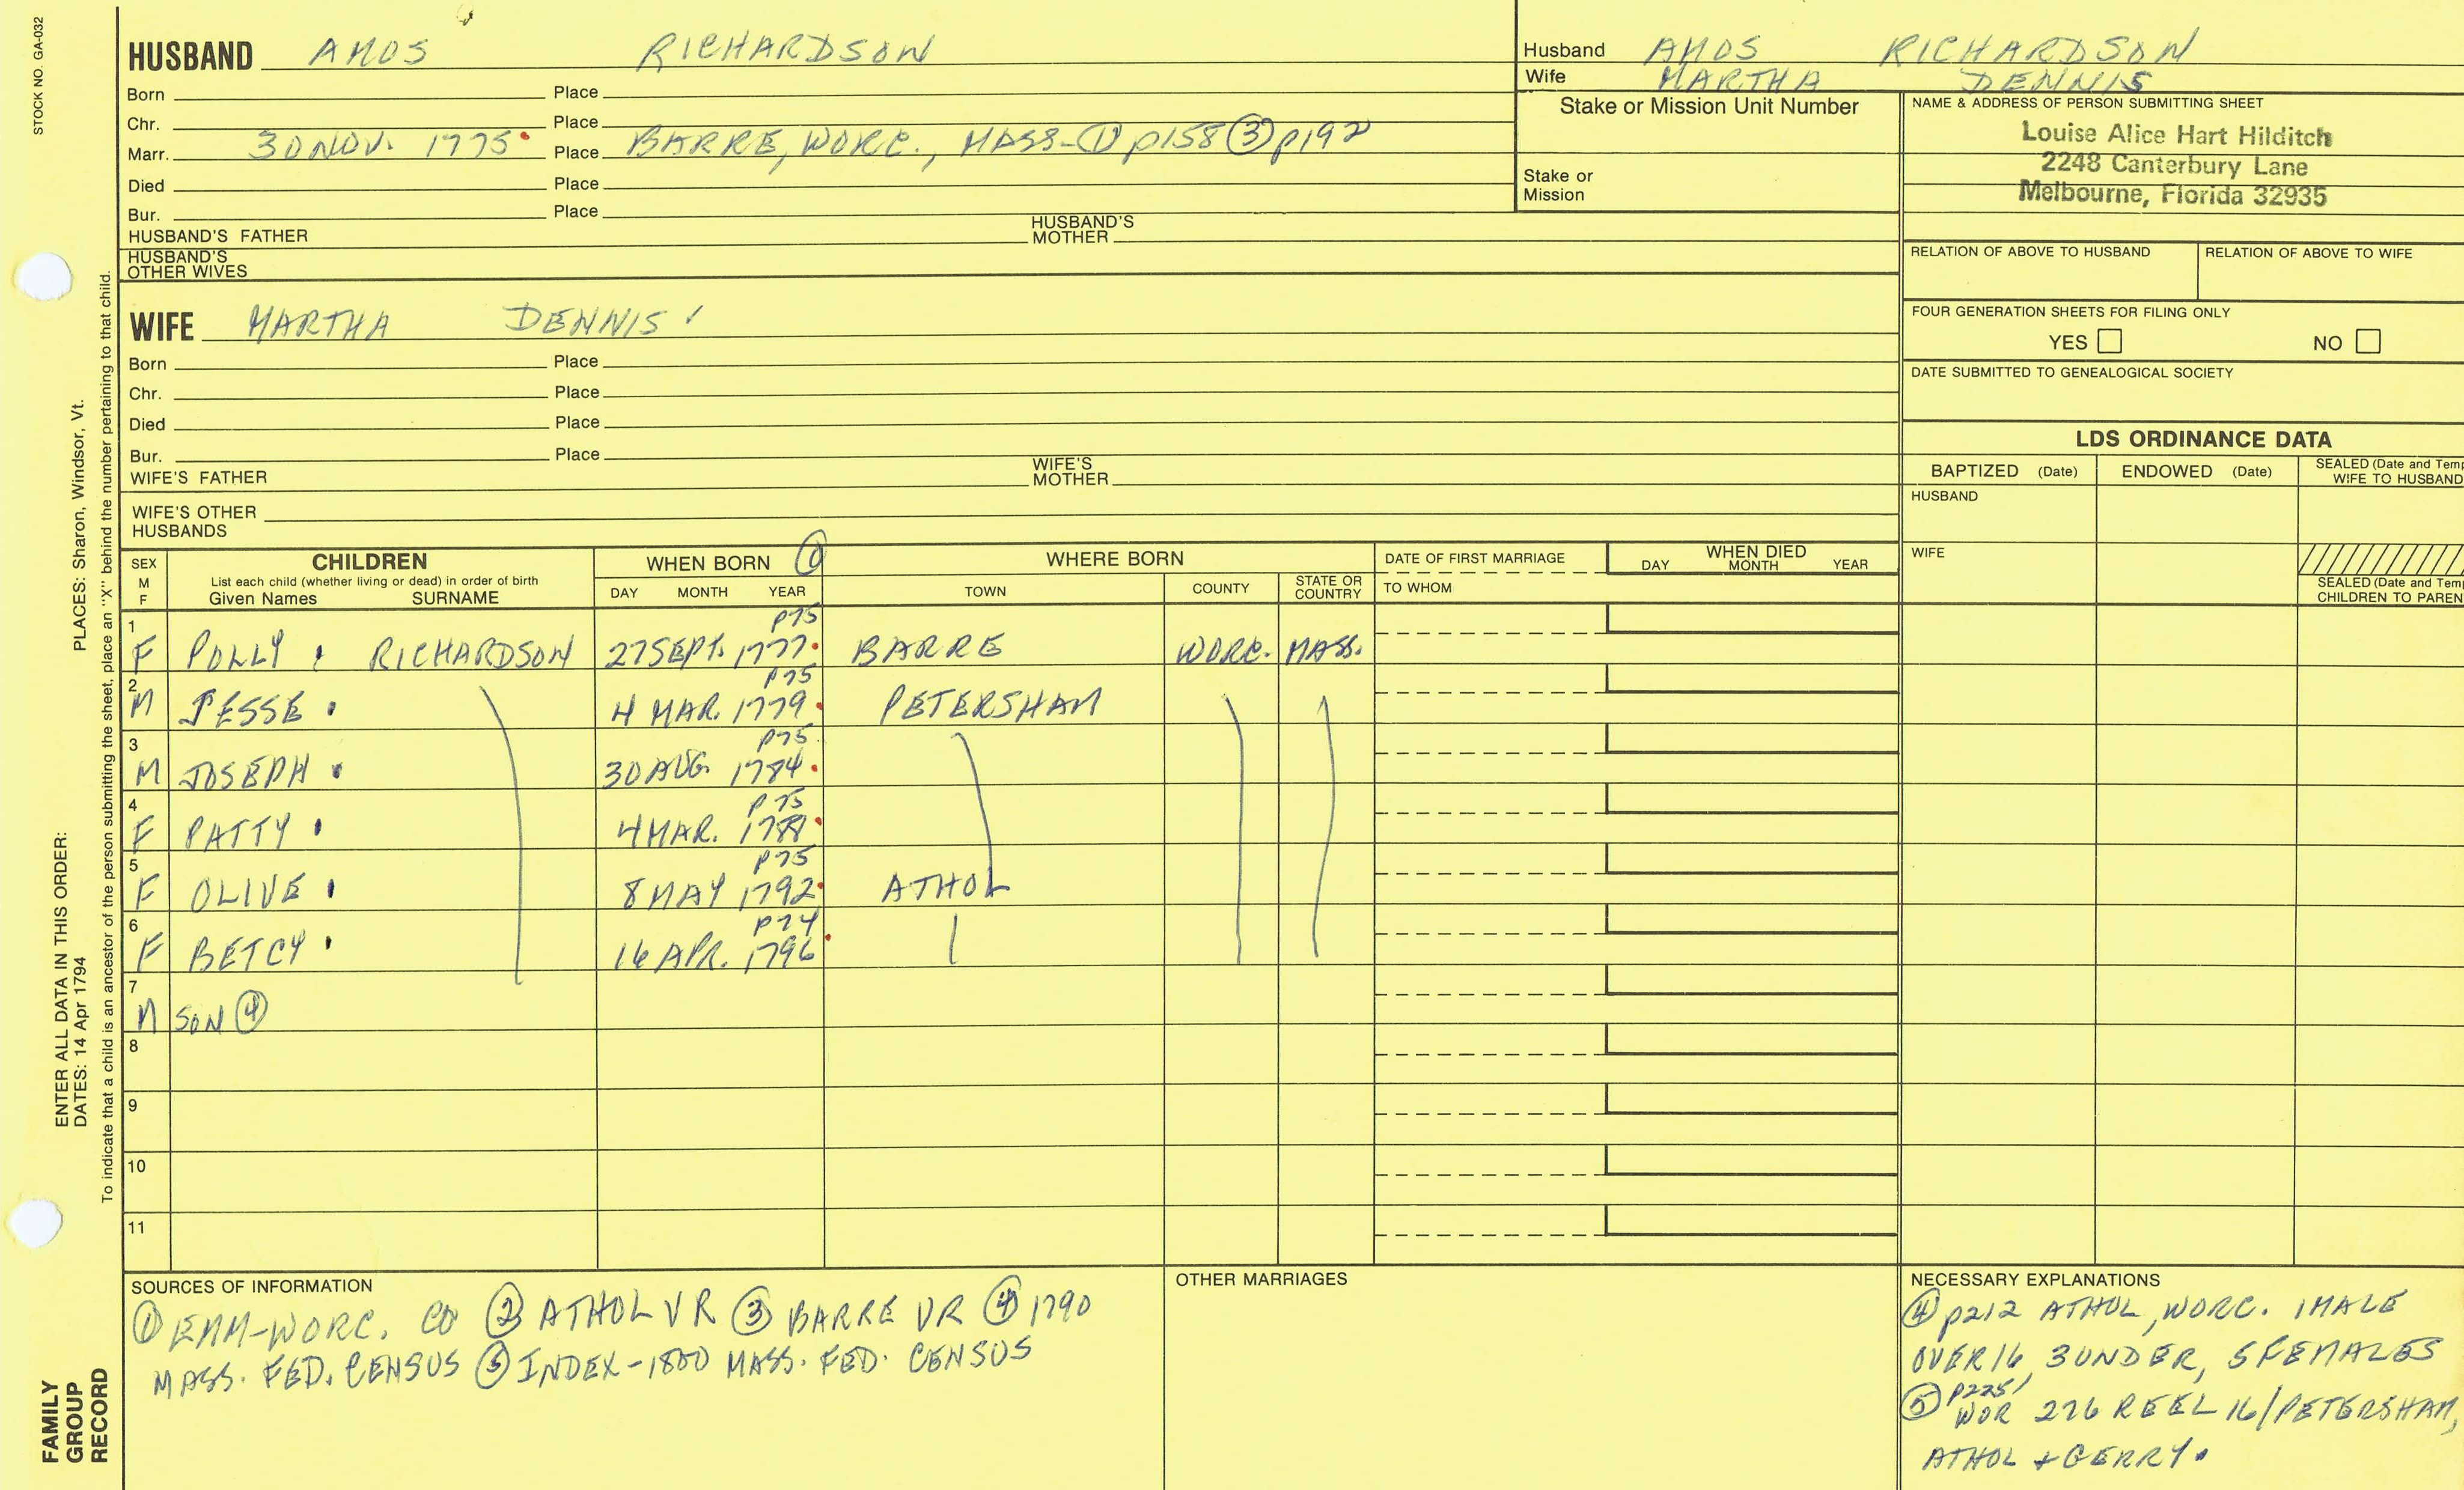 STOCK NO. GA-032
HUSBAND AMOS RICHARDSON
Born Place
Chr. Place
Marr. 30 NOV. 1775 Place BARRE, WORC., MASS-① p158 ③ p192
Died Place
Bur. Place
HUSBAND'S FATHER HUSBAND'S MOTHER
HUSBAND'S OTHER WIVES
Husband AMOS RICHARDSON
Wife MARTHA DENNIS
Stake or Mission Unit Number
Stake or Mission
NAME & ADDRESS OF PERSON SUBMITTING SHEET
Louise Alice Hart Hilditch
2248 Canterbury Lane
Melbourne, Florida 32935
RELATION OF ABOVE TO HUSBAND RELATION OF ABOVE TO WIFE
FOUR GENERATION SHEETS FOR FILING ONLY
YES NO
DATE SUBMITTED TO GENEALOGICAL SOCIETY
WIFE MARTHA DENNIS
Born Place
Chr. Place
Died Place
Bur. Place
WIFE'S FATHER WIFE'S MOTHER
WIFE'S OTHER HUSBANDS
LDS ORDINANCE DATA
BAPTIZED (Date) ENDOWED (Date) SEALED (Date and Temp
WIFE TO HUSBAND
HUSBAND
WIFE
SEALED (Date and Temp
CHILDREN TO PAREN
SEX M F
CHILDREN
List each child (whether living or dead) in order of birth
Given Names SURNAME
WHEN BORN
DAY MONTH YEAR
WHERE BORN
TOWN COUNTY STATE OR COUNTRY
DATE OF FIRST MARRIAGE
TO WHOM
WHEN DIED
DAY MONTH YEAR
1 p75
F POLLY RICHARDSON 27 SEPT. 1777 BARRE WORC. MASS.
2 p75
M JESSE 4 MAR. 1779 PETERSHAM
3 p75
M JOSEPH 30 AUG. 1784
4 p75
F PATTY 4 MAR.
5 p75
F OLIVE 8 MAY 1792 ATHOL
6 p74
F BETCY 16 APR. 1796
7
M SON ④
8
9
10
11
SOURCES OF INFORMATION
① EMM-WORC. CO ② ATHOL VR ③ BARRE VR ④ 1790
MASS. FED. CENSUS ⑤ INDEX-1800 MASS. FED. CENSUS
OTHER MARRIAGES
NECESSARY EXPLANATIONS
④ p212 ATHOL, WORC. 1 MALE
OVER 16, 3 UNDER, 5 FEMALES
⑤ p225/
WOR 276 REEL 16/PETERSHAM,
ATHOL + GERRY.
FAMILY GROUP RECORD
ENTER ALL DATA IN THIS ORDER:
DATES: 14 Apr 1794 PLACES: Sharon, Windsor, Vt.
To indicate that a child is an ancestor of the person submitting the sheet, place an "X" behind the number pertaining to that child.